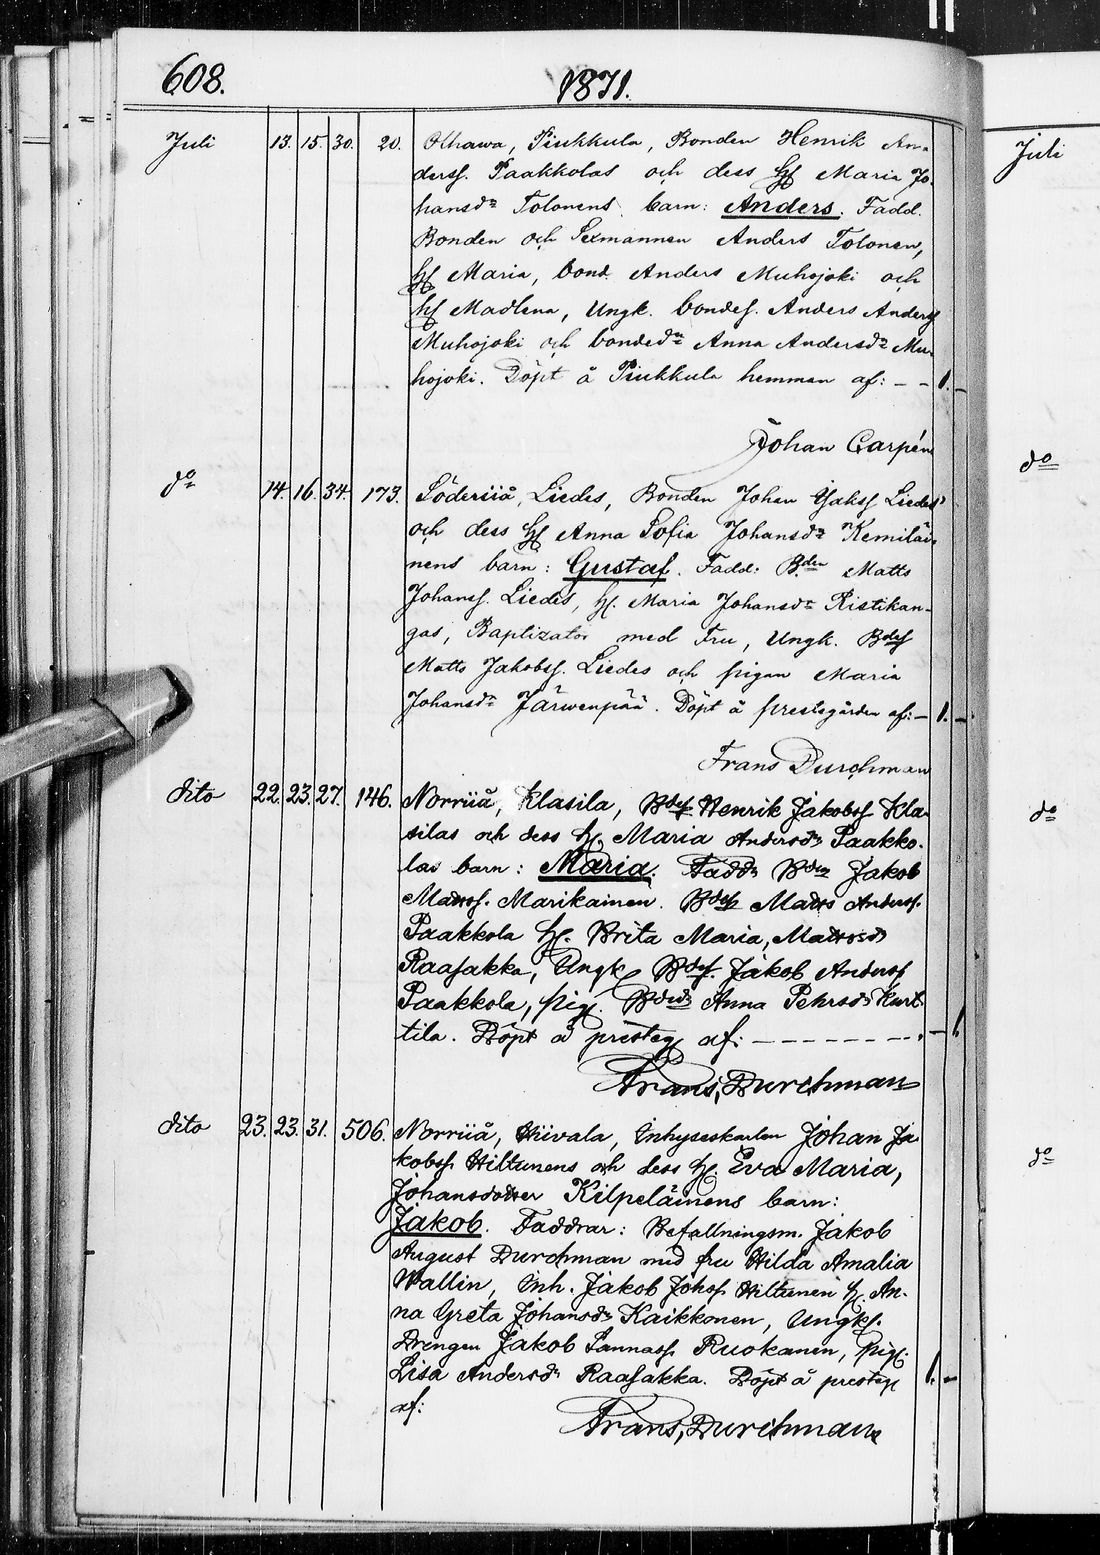 608. 1871.
Juli 13. 15. 30. 20. Uthawa, Piukkula, Bonden Henrik An-
derss. Paakkolas och dess H. Maria Jo-
hansdr Tolonens barn: Anders. Fadd.
Bonden och Sexmannen Anders Tolonen,
H. Maria, bond. Anders Muhojoki och
H. Madlena, Ungk. bondes. Anders Anderss
Muhojoki och bondedr Anna Andersdr Mu-
hojoki. Döpt å Piukkula hemman af: – – 1. –
Johan Carpén
do 14. 16. 34. 173. Söderiiå, Liedes, Bonden Johan Isakss Liedes
och dess H. Anna Sofia Johansdr Kemiläi-
nens barn: Gustaf. Fadd: Bden Matts
Johanss. Liedes, H. Maria Johansdr Ristikan-
gas, Baptizator med Fru, Ungk. Bdes
Matts Jakobss. Liedes och pigan Maria
Johansdr Järwenpää. Döpt å prestgården af: – 1. –
Frans Durchman
dito 22. 23. 27. 146. Norriiå, Klasila, Bdes Henrik Jakobss Kla-
silas och dess H. Maria Andersdr Paakko-
las barn: Maria. Fadd: Bden Jakob
Matss. Marikainen. Bdes Matts Anderss.
Paakkola H. Brita Maria, Mattsdr
Raasakka, Ungk Bdes. Jakob Anderss
Paakkola, pig. Bdedr Anna Pehrsdr Kurt-
tila. Döpt å presteg af: – – – – – – – – – 1.
Frans, Durchman
dito 23. 23. 31. 506. Norriiå, Hiivala, Inhyseskarlen Johan Ja-
kobss Hiltunens och dess H. Eva Maria,
Johansdotter Kilpeläinens barn:
Jakob. Faddrar: Befallningsm. Jakob
August Durchman med fru Hilda Amalia
Wallin, Inh. Jakob Johss Hiltunen H. An-
na Greta Johansdr Kaikkonen, Ungks.
Drengen Jakob Sannass Ruokanen, pig.
Lisa Andersdr Raasakka. Döpt å presteg 1. –
af:
Frans, Durchman
Juli
do
do
do